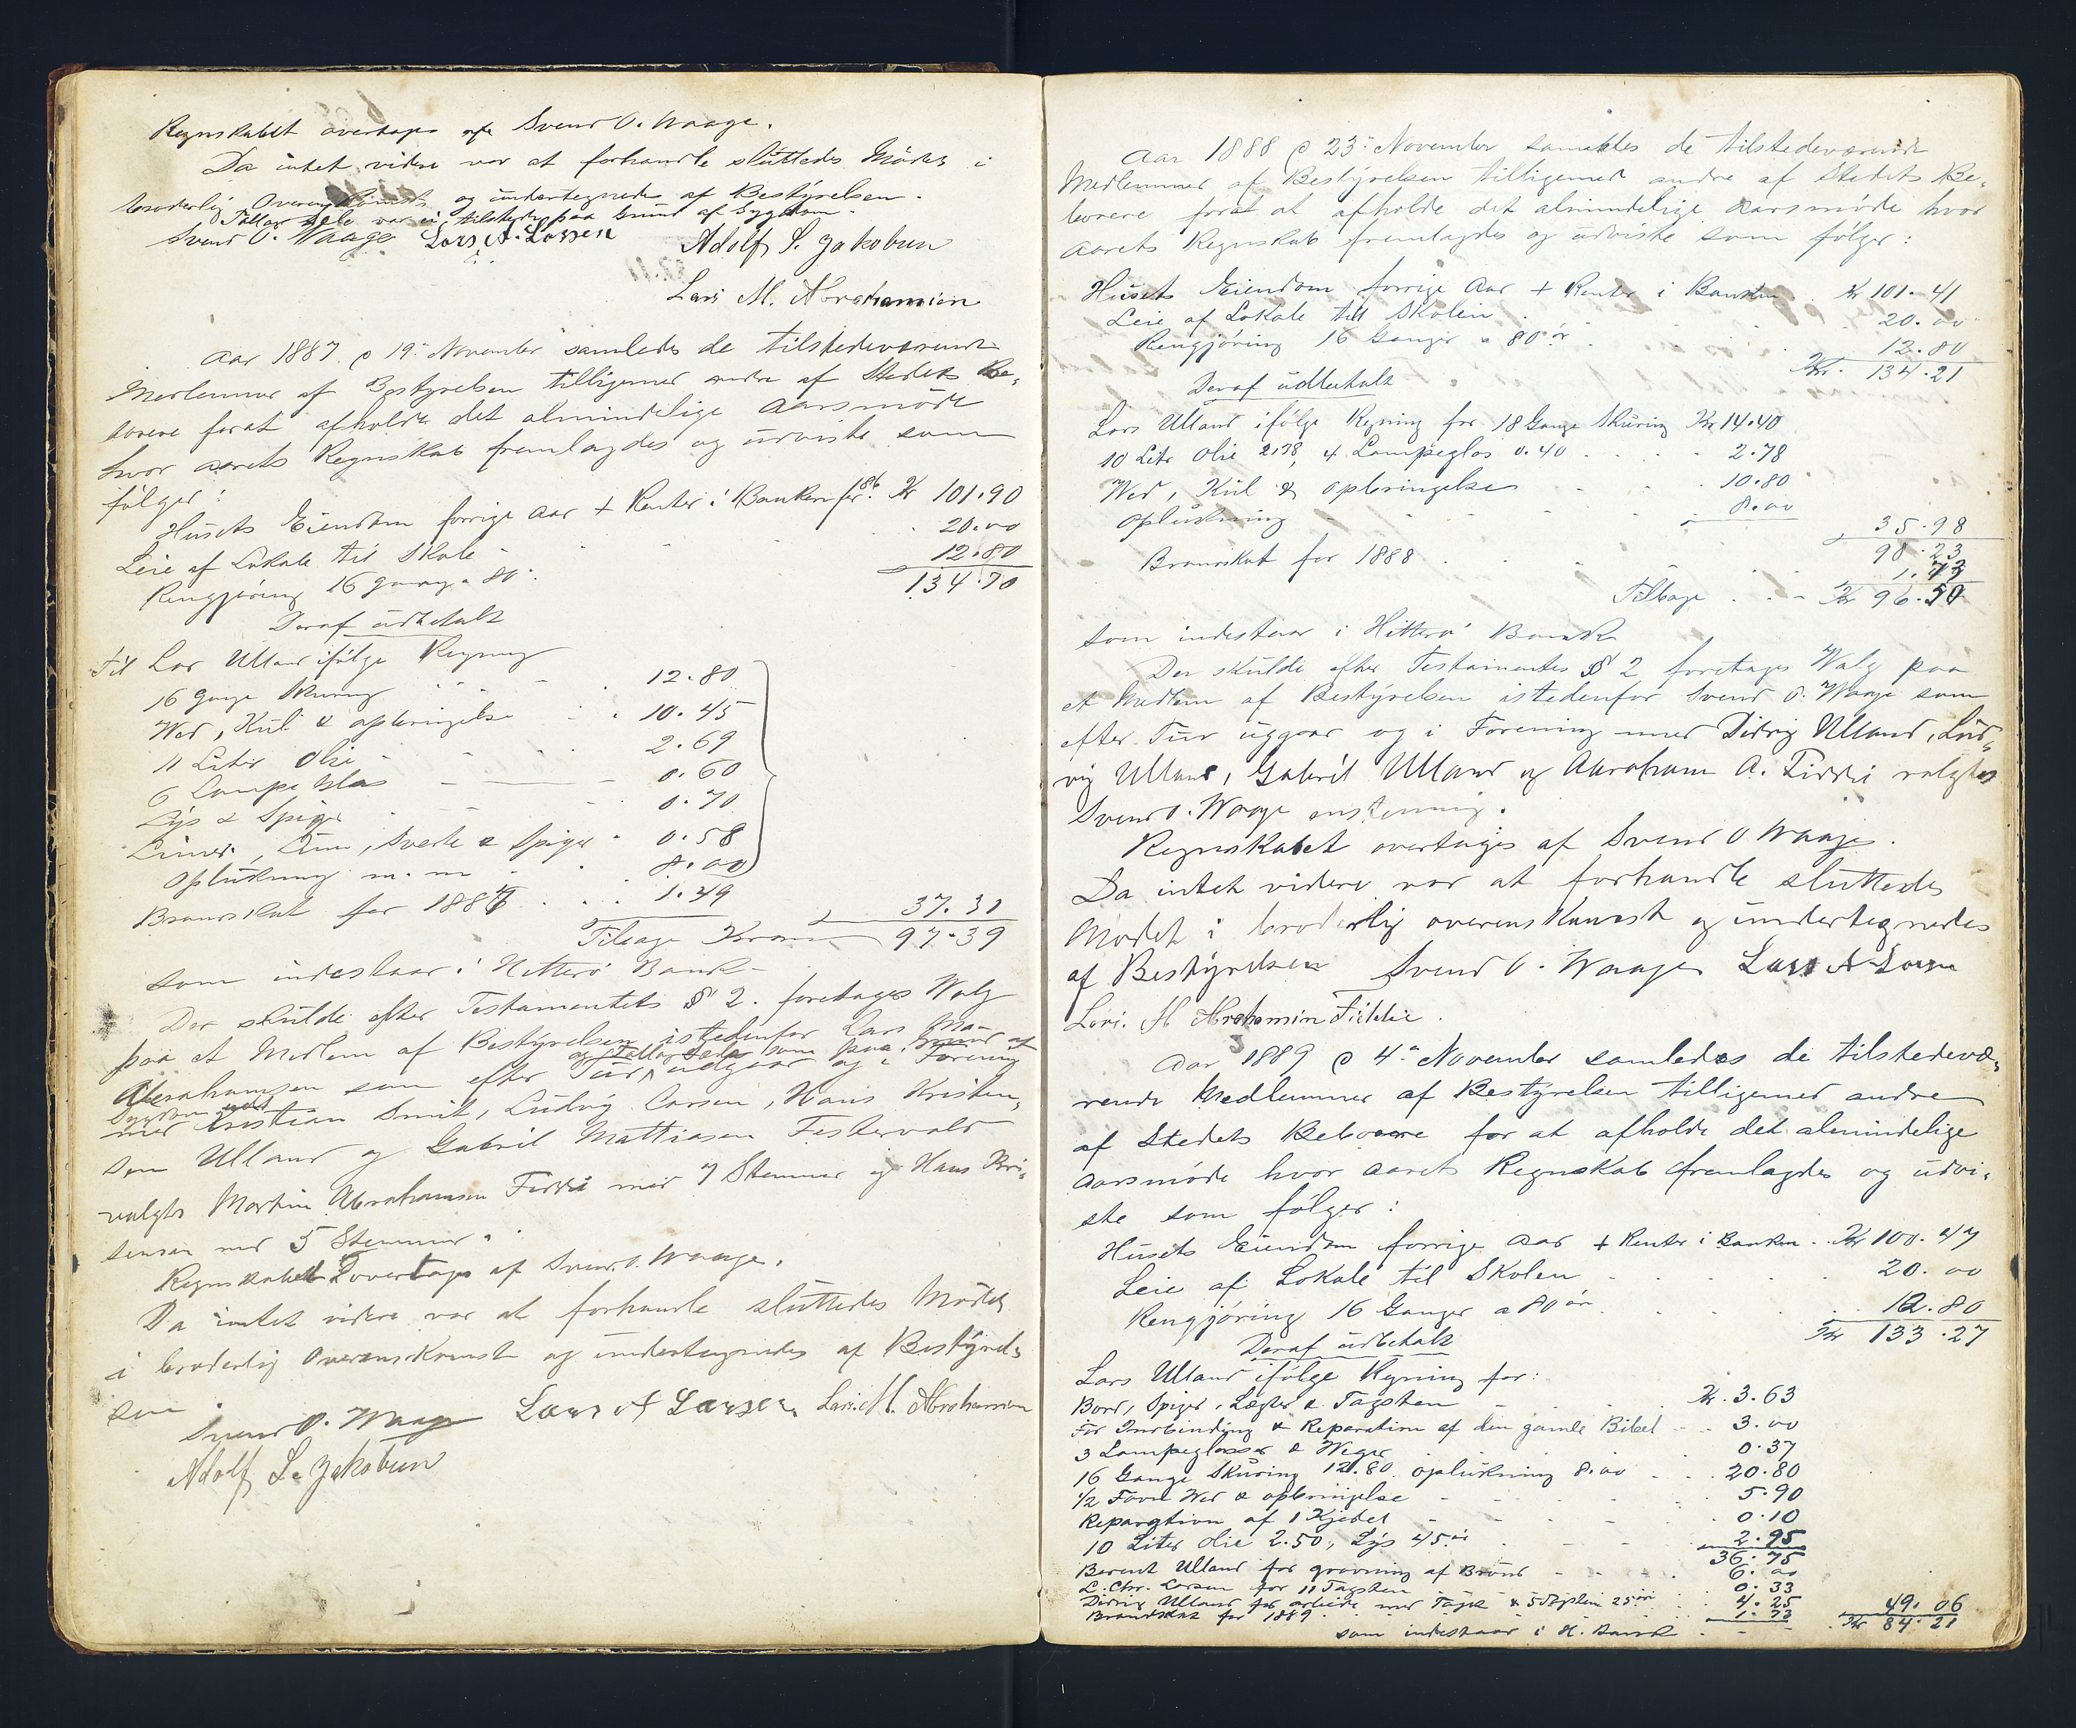 Regnskabet overtages af Svend O. Waage.
Da intet videre var at forhandle sluttedes Mødet i
broderlig Overenskomst og undertegnedes af Bestyrelsen.
Tallag Sele var ei tilstede paa Grund af Sygdom.
Svend O. Waage Lars A. Larsen Adolf S. Jakobsen
Lars M. Abrahamsen
Aar 1887 d 19de November samledes de tilstedeværende
Medlemmer af Bestyrelsen tilligemed andre af Stedets Be-
boere forat afholde det almindelige Aarsmøde
hvor Aarets Regnskab fremlagdes og udviste som
følger:
Husets Eiendom forrige Aar + Renter i Banken for 86. Kr 101.90
Leie af Lokale til Skole 20.00
Rengjøring 16 gange a 80 12.80
134.70
Deraf udbetalt
til Lar Ulland ifølge Regning
16 gange Skuring 12.80
Wed, Kul & opbringelse 10.45
11 Liter Olie 2.69
6 Lampe Glas 0.60
Lys & Spiger 0.70
Limer, Lim, Sverte & Spiger 0.58
Oplukning m. m 8.00
Brandskat for 1887 1.49 37.31
Tilbage Kroner 97.39
som indestaar i Hitterø Bank
Der skulde efter Testamentets § 2. foretages Valg
paa et Medlem af Bestyrelsen istedenfor Lars M.
og Tallag Sele som paa Grund af
Abrahamsen som efter Tur udgaar og i Forening
Sygdom
med Kristian Smit, Ludvig Larsen, Hans Kristen-
sen Ulland og Gabril Mattiasen Festervold
valgtes Martin Abrahamsen Fidde med 7 Stemmer og Hans Kri-
stensen med 5 Stemmer.
Regnskabet overtages af Svend O. Waage.
Da intet videre var at forhandle sluttedes Mødet
i broderlig Overenskomst og undertegnedes af Bestyrel-
sen.
Svend O. Waage Lars A Larsen Lars. M. Abrahamsen
Adolf S. Jakobsen
Aar 1888 d 23de November samledes de tilstedeværende
Medlemmer af Bestyrelsen tilligemed andre af Stedets Be-
boere forat at afholde det almindelige Aarsmøde hvor
Aarets Regnskab fremlagdes og udviste som følger:
Husets Eiendom forrige Aar + Renter i Banken Kr 101.41
Leie af Lokale til Skolen 20.00
Rengjøring 16 Ganger a 80 ør 12.80
Kr. 134.21
Deraf udbetalt
Lars Ulland ifølge Regning for 18 Gange Skuring Kr 14.40
10 Litr Olie 2.38, 4 Lampeglas 0.40 2.78
Wed, Kul & opbringelse 10.80
Oplukning 8.00 35.98
98.23
Brandskat for 1888 1.73
Tilbage Kr 96.50
som indestaar i Hitterø Bank
Der skulde efter Testamentes § 2 foretages Valg paa
et Medlem af Bestyrelsen istedenfor Svend O. Waage som
efter Tur udgaar og i Forening med Didrig Ulland, Lud-
vig Ulland, Gabril Ulland og Abraham A. Fidde valgtes
Svend O. Waage enstemmig.
Regnskabet overtages af Svend O Waage.
Da intet videre var at forhandle sluttedes
Mødet i broderlig overenskomst og undertegnedes
af Bestyrelsen Svend O. Waage Lars A Larsen
Lars. M Abrahamsen Fidde.
Aar 1889 d 4de November samledes de tilstedevæ-
rende Medlemmer af Bestyrelsen tilligemed andre
af Stedets Beboere for at afholde det almindelige
Aarsmøde hvor Aarets Regnskab fremlagdes og udvi-
ste som følger:
Husets Eiendom forrige Aar + Renter i Banken Kr 100.47
Leie af Lokale til Skolen 20.00
Rengjøring 16 Ganger a 80 ør 12.80
Kr 133.27
Deraf udbetalt
Lars Ulland ifølge Regning for:
Bord, Spiger, Lægter & Tagsten Kr. 3.63
For Indbinding & Reparation af den gamle Bibel 3.00
3 Lampeglasser & Weger 0.37
16 Gange Skuring 12.80 oplukning 8.00 20.80
1/2 Favn Wed & opbringelse 5.90
Reparation af 1 Kjedel 0.10
10 Liter Olie 2.50, Lys 45 ør 2.95
36.75
Berent Ulland for gravning af Brønd 6.00
L. Chr. Larsen for 11 Tagsten 0.33
Didrig Ulland for arbeide med Taget & 5 Tagsten 25 ør 4.25
Brandskat for 1889 1.73 49.06
som indestaar i H. Bank Kr 84.21